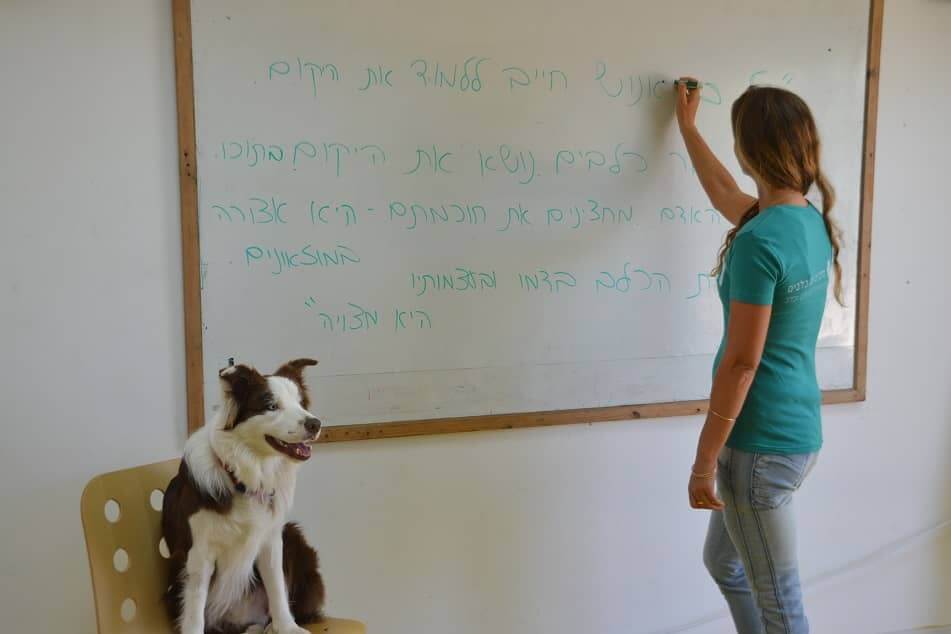 אנוש חייב ללמוד את הקום.
כלבים נושא את היקום בתוכו.
האדם מחצינים את חוכמתם - היא אצורה
במוזאונים
הכלב בדמו ובעצמותיו
היא מצויה"